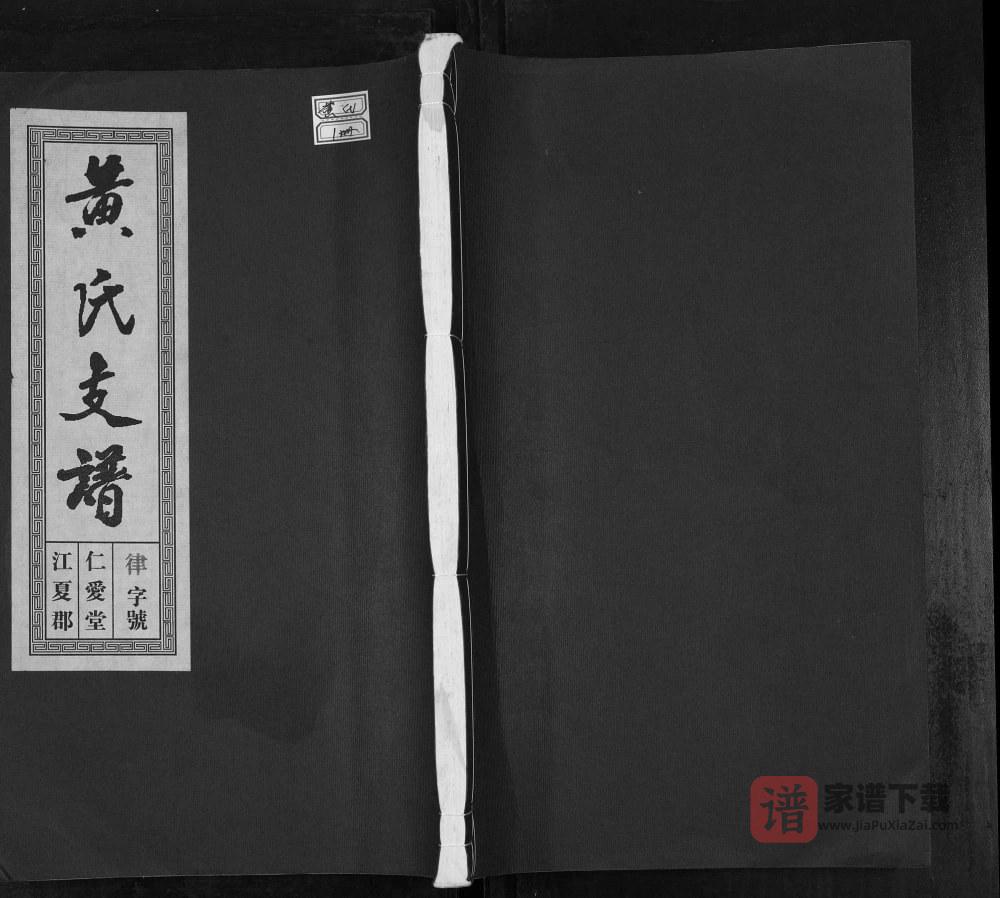 黄氏支譜
律字號
仁愛堂
江夏郡
1冊
谱
家谱下载
www.JiaPuXiaZai.com